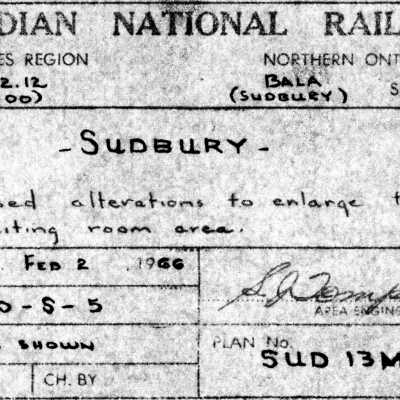 DIAN NATIONAL RAIL
ES REGION NORTHERN ONT
2.12 BALA
00) (SUDBURY) S
- SUDBURY -
sed alterations to enlarge t
iting room area.
FEB 2 1966
O-S-5
AREA ENGIN
SHOWN PLAN No.
SUD 13M
CH. BY